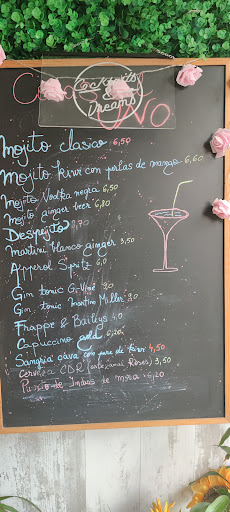 Cocktails
&
Dreams
Mojito clasico 6,50
Mojito kiwi con perlas de mango 6,60
Mojito Vodka negra 6,50
Mojito ginger beer 6,80
Despojito
Martini blanco ginger 3,50
Apperol Spritz 6,0
Gin tonic G-Viné
Gin tonic Martin Miller 9,0
Frappe & Baileys 4,0
Capuccino cold 6,20
Sangria cava con pure de kiwi 4,50
Cerveza CBR (artezanal Roses) 3,50
de mora 6,20